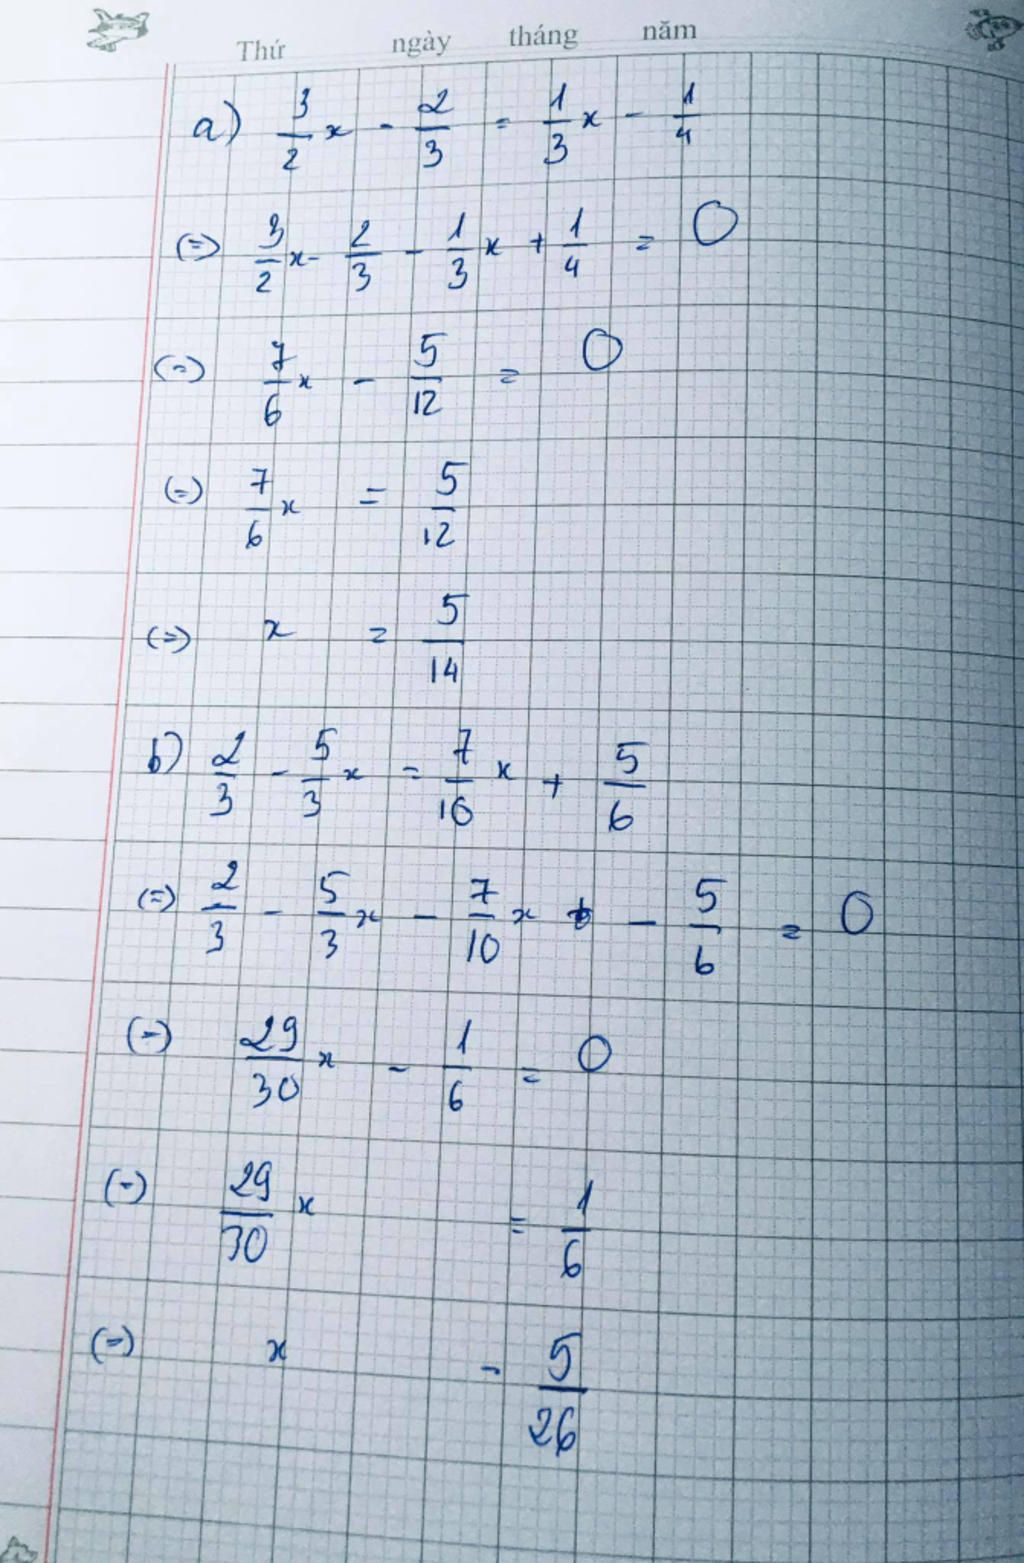 Thứ ngày tháng năm
a) 3/2 x - 2/3 = 1/3 x - 1/4
(=) 3/2 x - 2/3 - 1/3 x + 1/4 = 0
(=) 7/6 x - 5/12 = 0
(=) 7/6 x = 5/12
(=) x = 5/14
b) 2/3 - 5/3 x = 7/10 x + 5/6
(=) 2/3 - 5/3 x - 7/10 x - 5/6 = 0
(=) 29/30 x - 1/6 = 0
(=) 29/30 x = 1/6
(=) x = 5/26